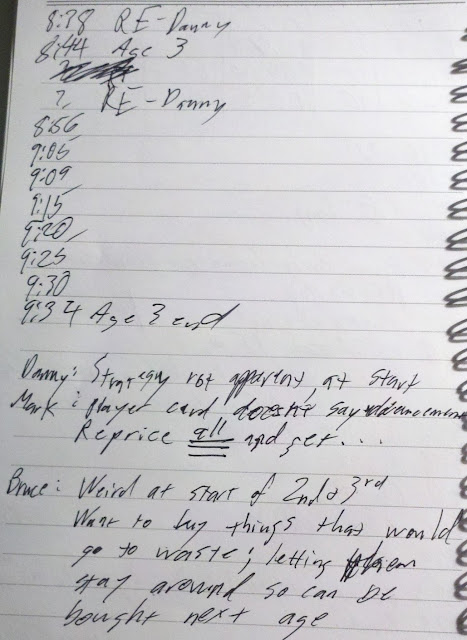 8:38 RE-Danny
8:44 Age 3
?, RE-Danny
8:56
9:05
9:09
9:15
9:20
9:25
9:30
9:34 Age 3 end
Danny: Strategy not apparent, at start
Mark: player card doesn't say advancement
Reprice all and get...
Bruce: Weird at start of 2nd & 3rd
Want to buy things that would
go to waste; letting them
stay around so can be
bought next age